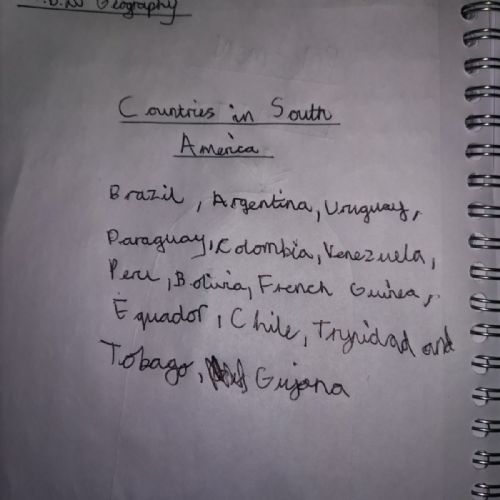 Geography
Countries in South
America
Brazil, Argentina, Uruguay,
Paraguay, Colombia, Venezuela,
Peru, Bolivia, French Guinea,
Equador, Chile, Trynidad and
Tobago, Gujana